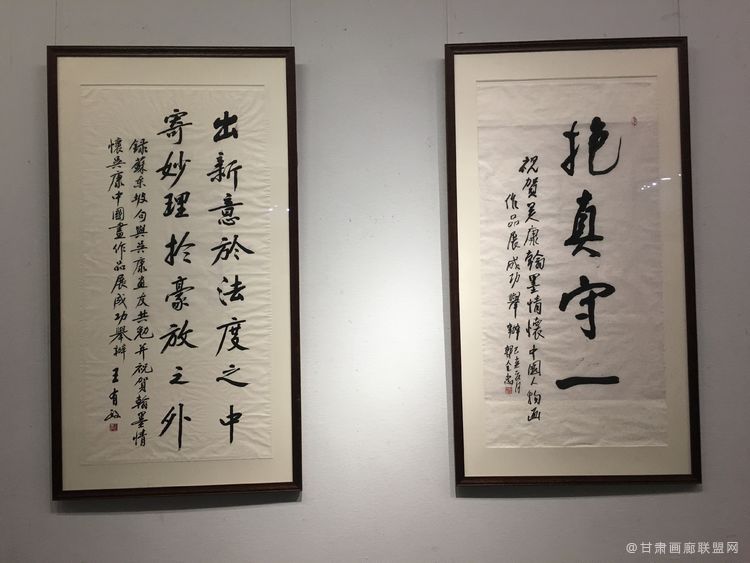 出新意於法度之中
寄妙理於豪放之外
録蘇東坡句與吴康畫友共勉并祝賀翰墨情
懷吴康中國畫作品展成功舉辦 王有
抱真守一
祝賀吴康翰墨情懷中國人物画
作品展成功舉辦
@甘肃画廊联盟网